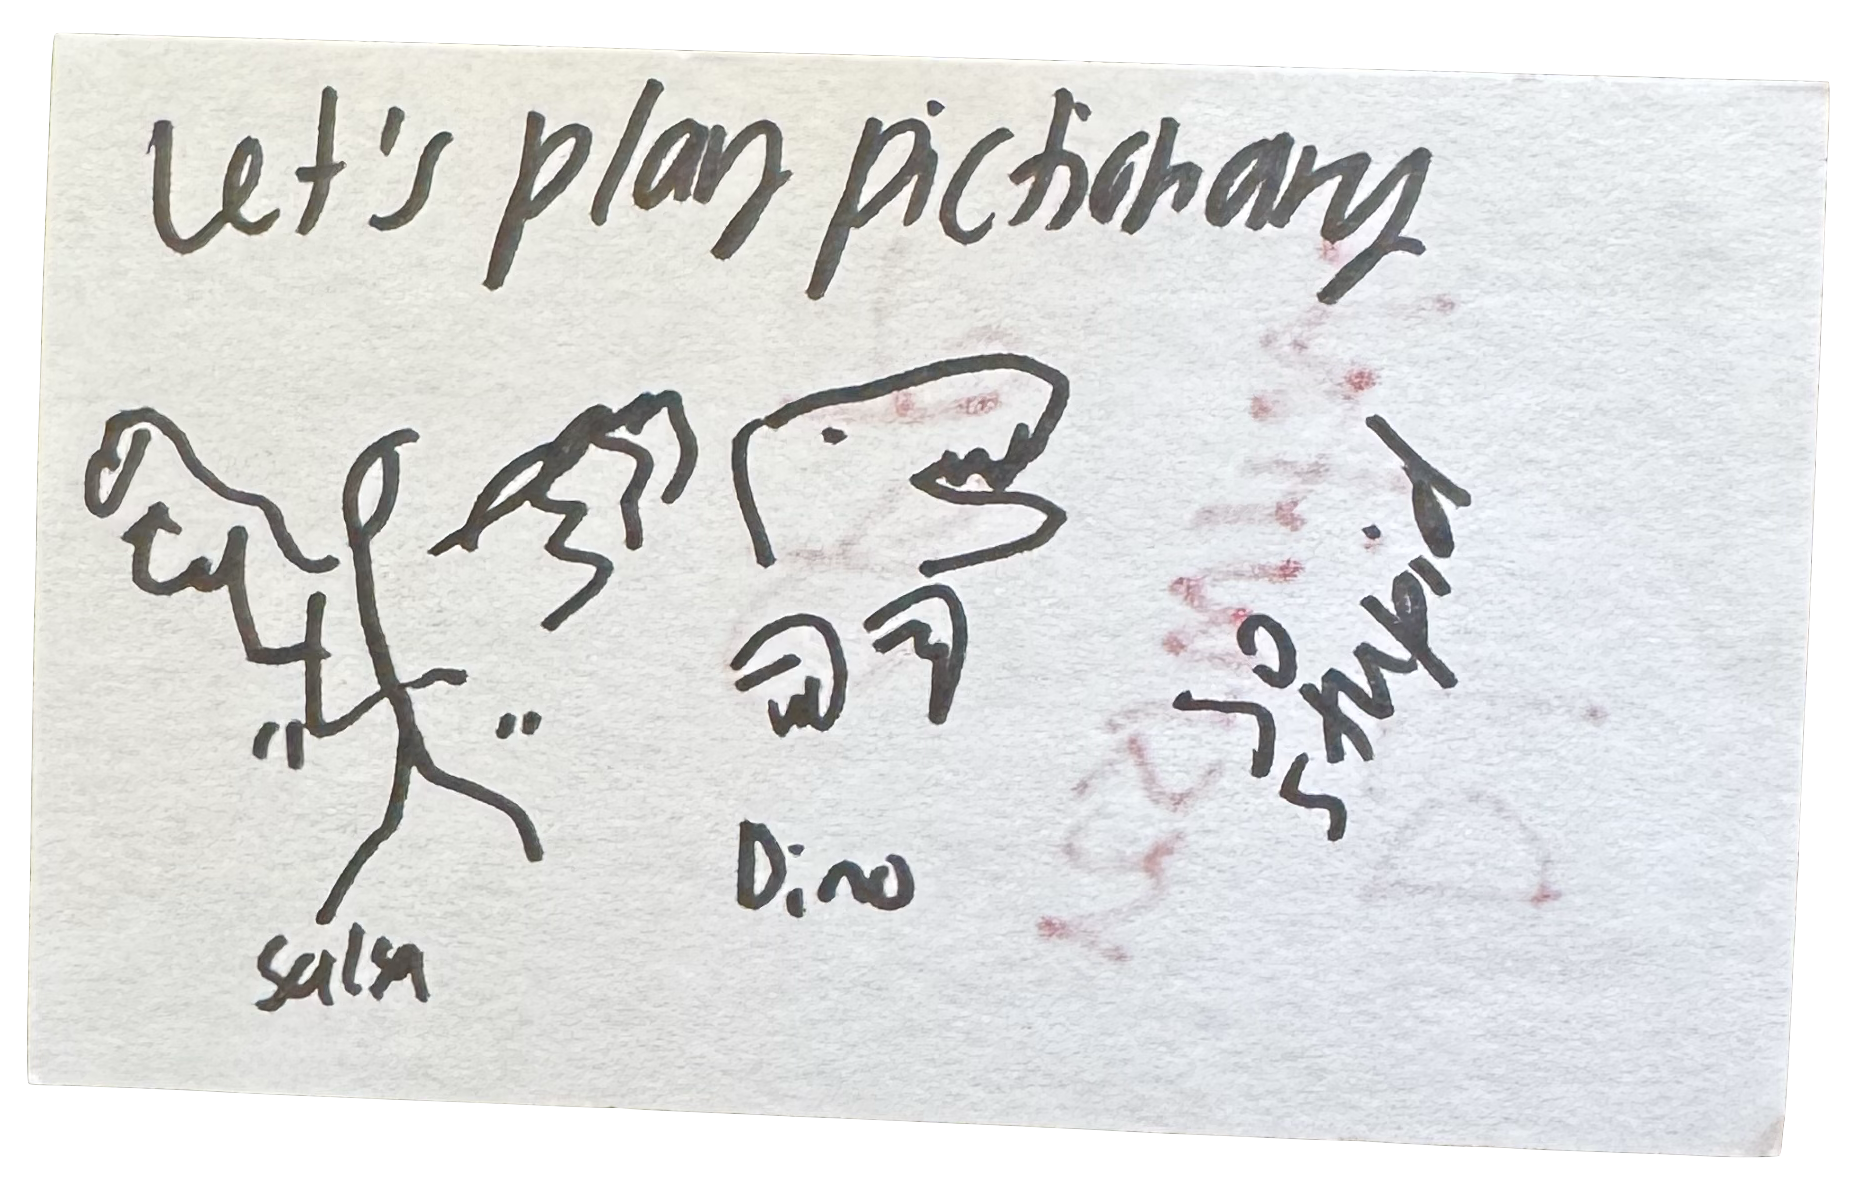 Let's play pictionary
salsa
Dino
so
stupid